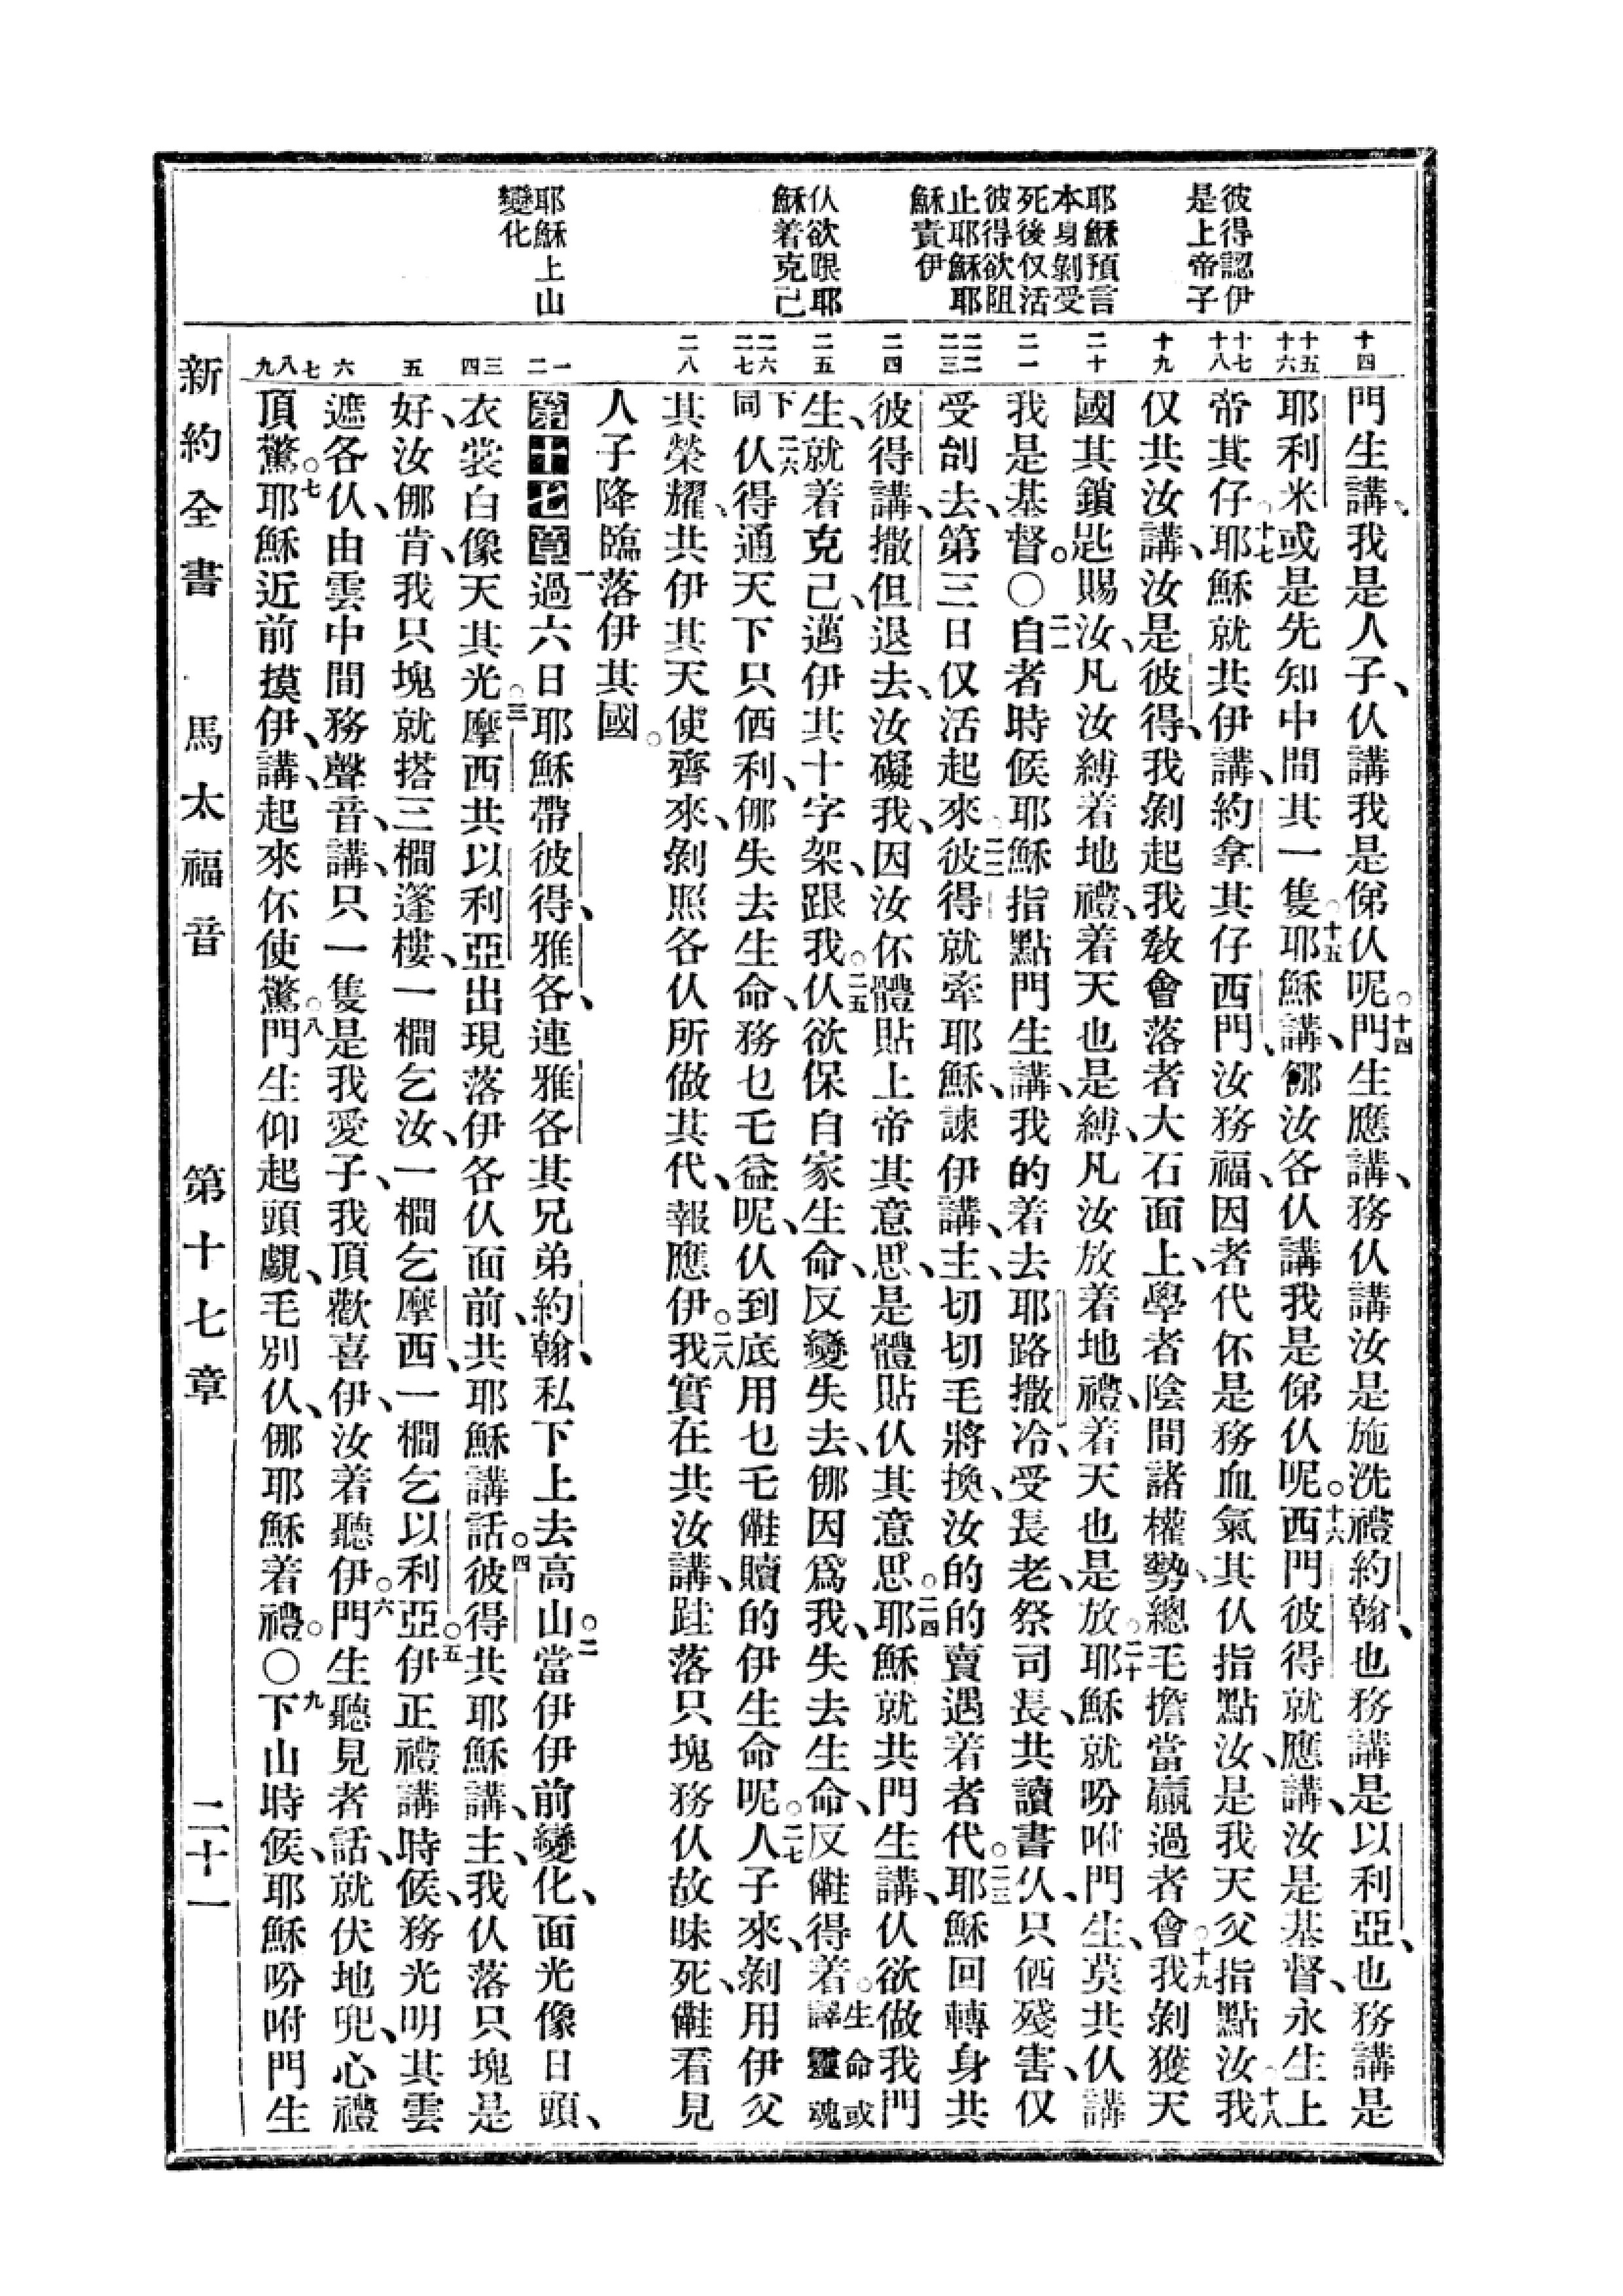 彼得認伊
是上帝子
耶穌預言
本身剝受
死後仅活
彼得欲阻
止耶穌耶
穌責伊
仈欲跟耶
穌着克己
耶穌上山
變化
十四
十五
十六
十七
十八
十九
二十
二一
二二
二三
二四
二五
二六
二七
二八
一
二
三
四
五
六
七
八
九
門生講、我是人子、仈講我是俤仈呢。十四門生應講、務仈講汝是施洗禮約翰、也務講是以利亞、也務講是
耶利米或是先知中間其一隻。十五耶穌講、倻汝各仈講我是俤仈呢。十六西門彼得就應講、汝是基督、永生上
帝其仔。十七耶穌就共伊講、約拿其仔西門、汝務福、因者代伓是務血氣其仈指點汝、是我天父指點汝。十八我
仅共汝講、汝是彼得、我剝起我教會落者大石面上、學者陰間諸權勢、總毛擔當贏過者會。十九我剝獲天
國其鎖匙賜汝、凡汝縛着地禮、着天也是縛、凡汝放着地禮、着天也是放。二十耶穌就吩咐門生、莫共仈講
我是基督。〇二一自者時候耶穌指點門生講、我的着去耶路撒冷、受長老、祭司長、共讀書仈、只倆殘害、仅
受刣去、第三日仅活起來。二二彼得就牽耶穌、諫伊講、主、切切毛將換、汝的的賣遇着者代。二三耶穌回轉身共
彼得講、撒但退去、汝礙我、因汝伓體貼上帝其意思、是體貼仈其意思。二四耶穌就共門生講、仈欲做我門
生、就着克己、邁伊其十字架、跟我。二五仈欲保自家生命、反變失去、倻因爲我、失去生命、反儺得着。生命或譯靈魂
下同二六仈得通天下只倆利、倻失去生命、務乜乇益呢、仈到底用乜乇儺贖的伊生命呢。二七人子來、剝用伊父
其榮耀、共伊其天使齊來、剝照各仈所做其代、報應伊。二八我實在共汝講、跬落只塊務仈故昧死、儺看見
人子降臨落伊其國。
第十七章一過六日耶穌帶彼得、雅各、連雅各其兄弟約翰、私下上去高山。二當伊伊前變化、面光像日頭、
衣裳白像天其光。三摩西共以利亞出現落伊各仈面前、共耶穌講話。四彼得共耶穌講、主、我仈落只塊是
好、汝倻肯、我只塊就搭三櫚篷樓、一櫚乞汝、一櫚乞摩西、一櫚乞以利亞。五伊正禮講時候、務光明其雲
遮各仈、由雲中間務聲音、講、只一隻是我愛子、我頂歡喜伊、汝着聽伊。六門生聽見者話、就伏地兜、心禮
頂驚。七耶穌近前摸伊、講、起來伓使驚。八門生仰起頭覷、毛別仈、倻耶穌着禮。〇九下山時候、耶穌吩咐門生
新約全書 馬太福音 第十七章 二十一